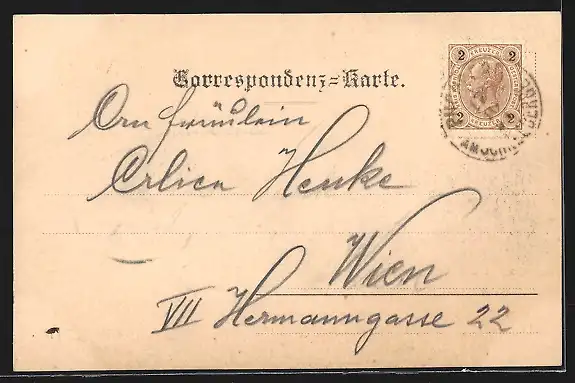 Correspondenz=Karte.
2 KREUZER 2
2 KREUZER 2
An Fräulein
Henke
Wien
VII Hermanngasse 22